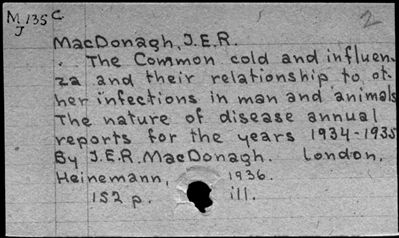 M.135 C
J
2
MacDonagh, J.E.R.
. The Common cold and influen-
za and their relationship to ot-
her infections in man and animals
The nature of disease annual
reports for the years 1934-1935
By J.E.R. MacDonagh. London,
Heinemann, 1936.
152 p. ill.